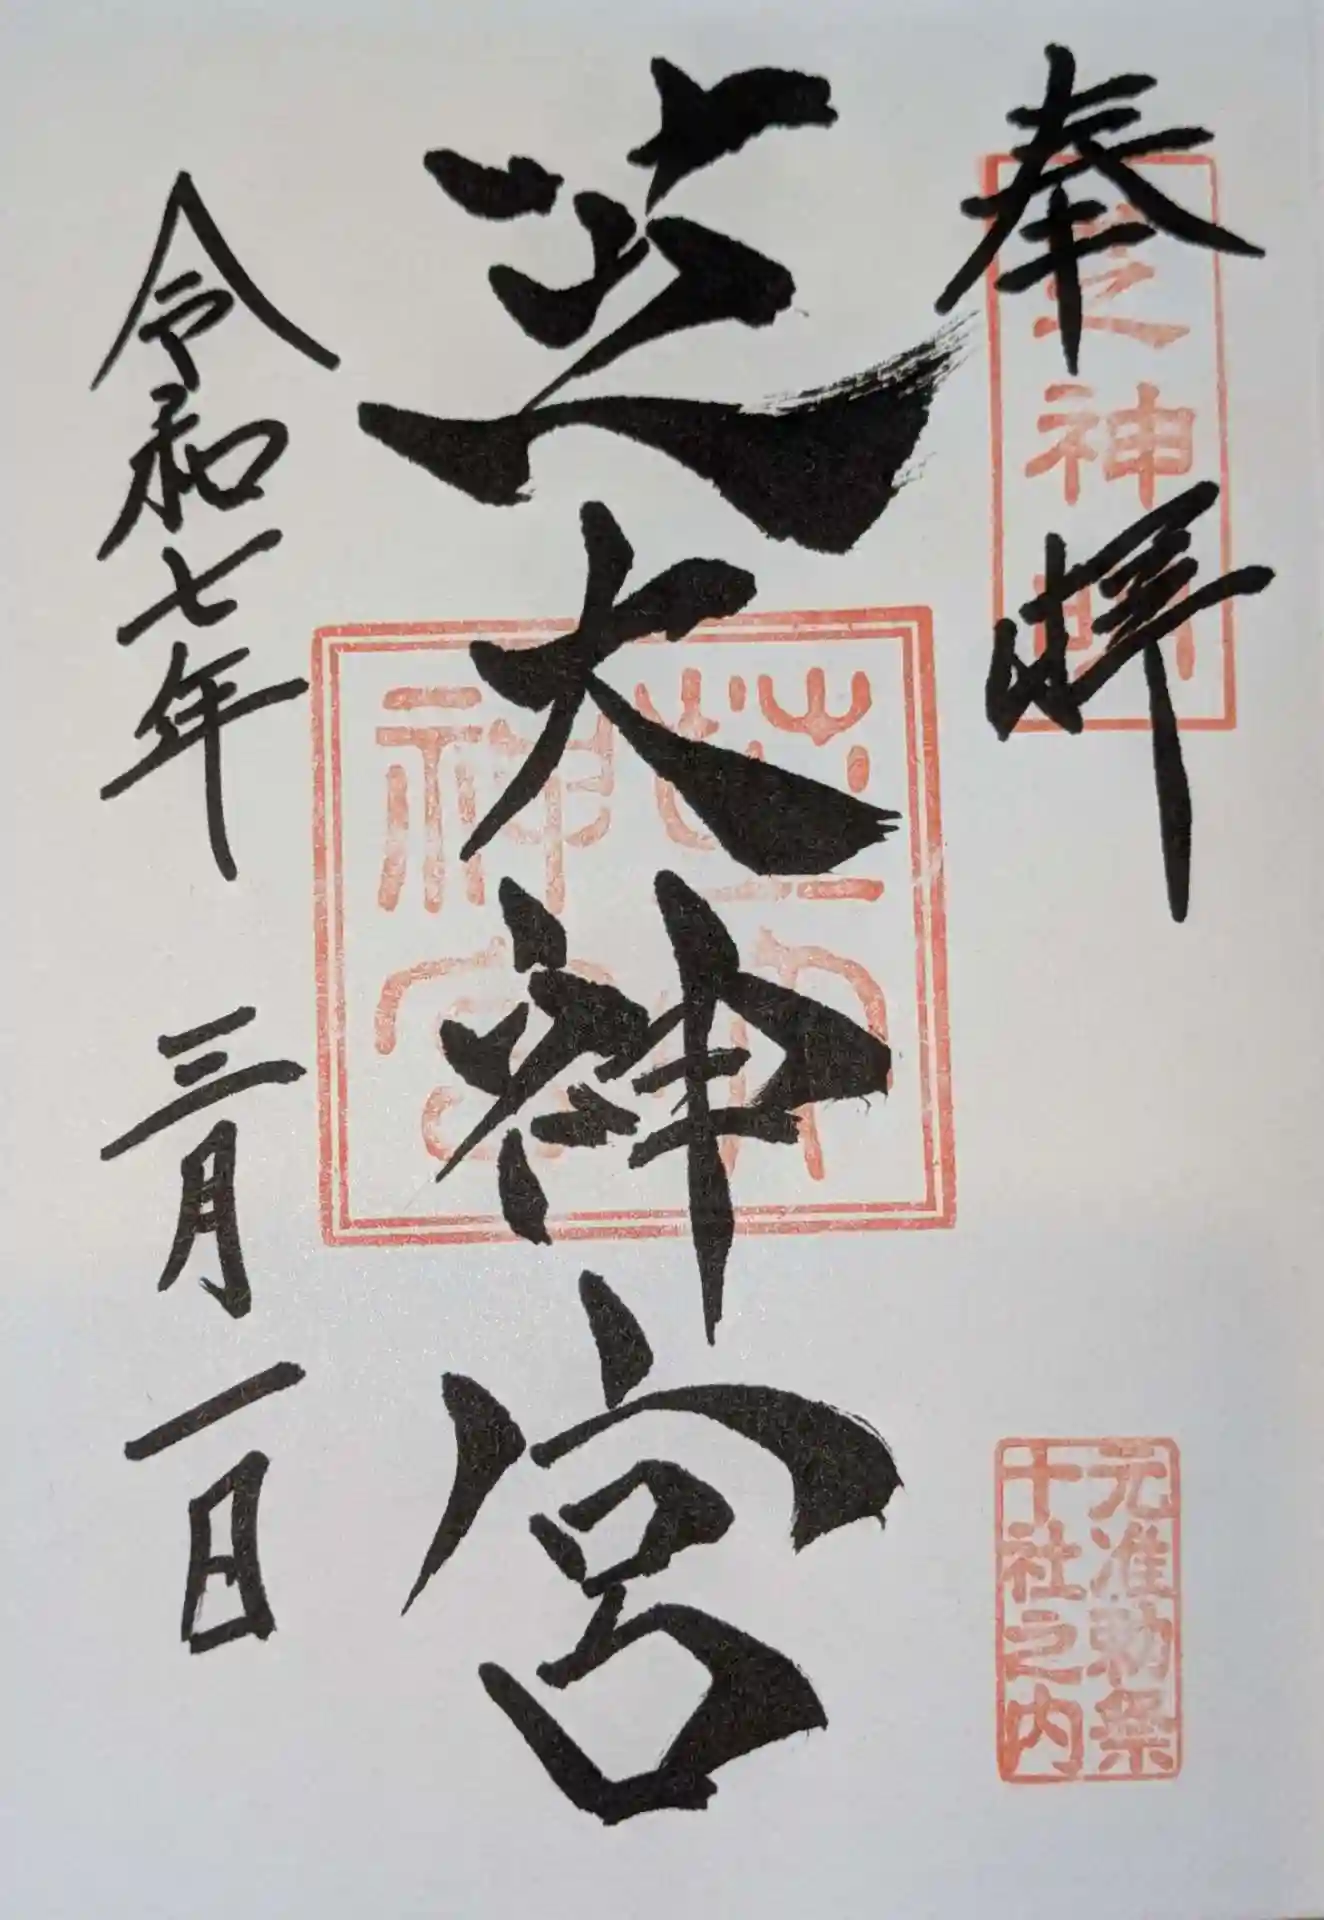 奉拝
芝大神宮
令和七年 三月一日
芝神明
芝大神宮
元准勅祭
十社之内